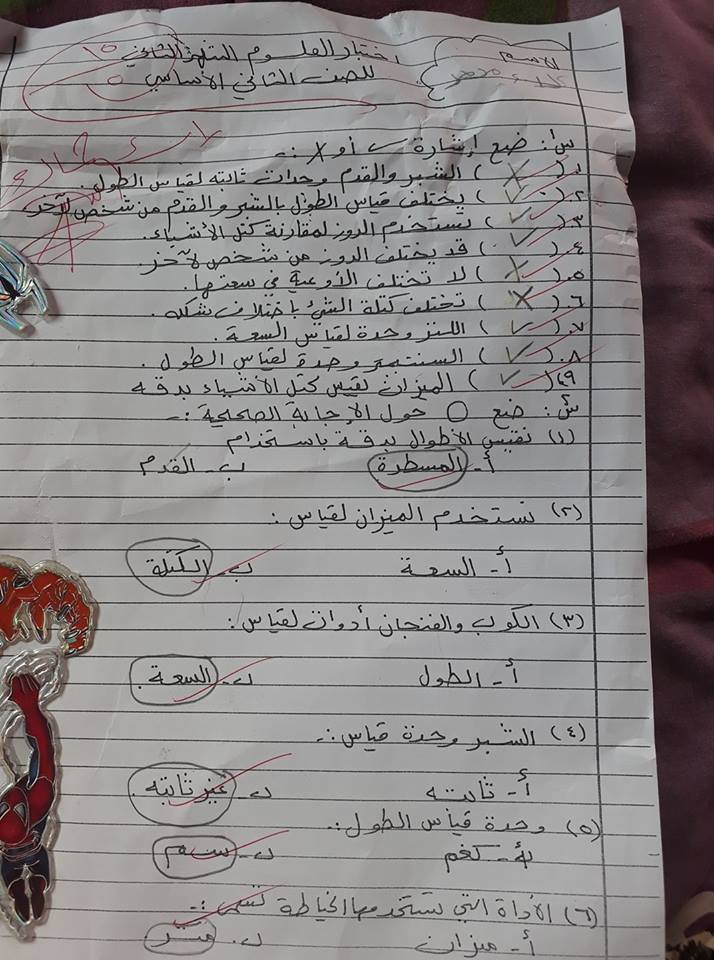 اختبار العلوم الشهر الثاني
للصف الثاني الأساسي
١٥
١٥
الاسم
س١: ضع إشارة ✓ أو X :-
١. ( X ) الشبر والقدم وحدات ثابته لقياس الطول.
٢. ( ✓ ) يختلف قياس الطول بالشبر والقدم من شخص لآخر.
٣. ( ✓ ) يستخدم الدوز لمقارنة كتل الأشياء.
٤. ( ✓ ) قد يختلف الدوز من شخص لآخر.
٥. ( X ) لا تختلف الأوعية في سعتها.
٦. ( X ) تختلف كتلة الشيء باختلاف شكله.
٧. ( ✓ ) اللتر وحدة لقياس السعة.
٨. ( ✓ ) السنتمتر وحدة لقياس الطول.
٩. ( ✓ ) الميزان لقيس كتل الأشياء بدقه
س٢: ضع O حول الإجابة الصحيحة :-
(١) نقيس الأطوال بدقة باستخدام
أ- المسطرة ب- القدم
(٢) نستخدم الميزان لقياس :
أ- السعة ب- الكتلة
(٣) الكوب والفنجان أدوات لقياس :
أ- الطول ب- السعة.
(٤) الشبر وحدة قياس :-
أ- ثابته ب- غير ثابته.
(٥) وحدة قياس الطول :-
أ- كغم ب- سم
(٦) الأداة التي تستخدمها الخياطة تسمى :-
أ- ميزان ب- متر